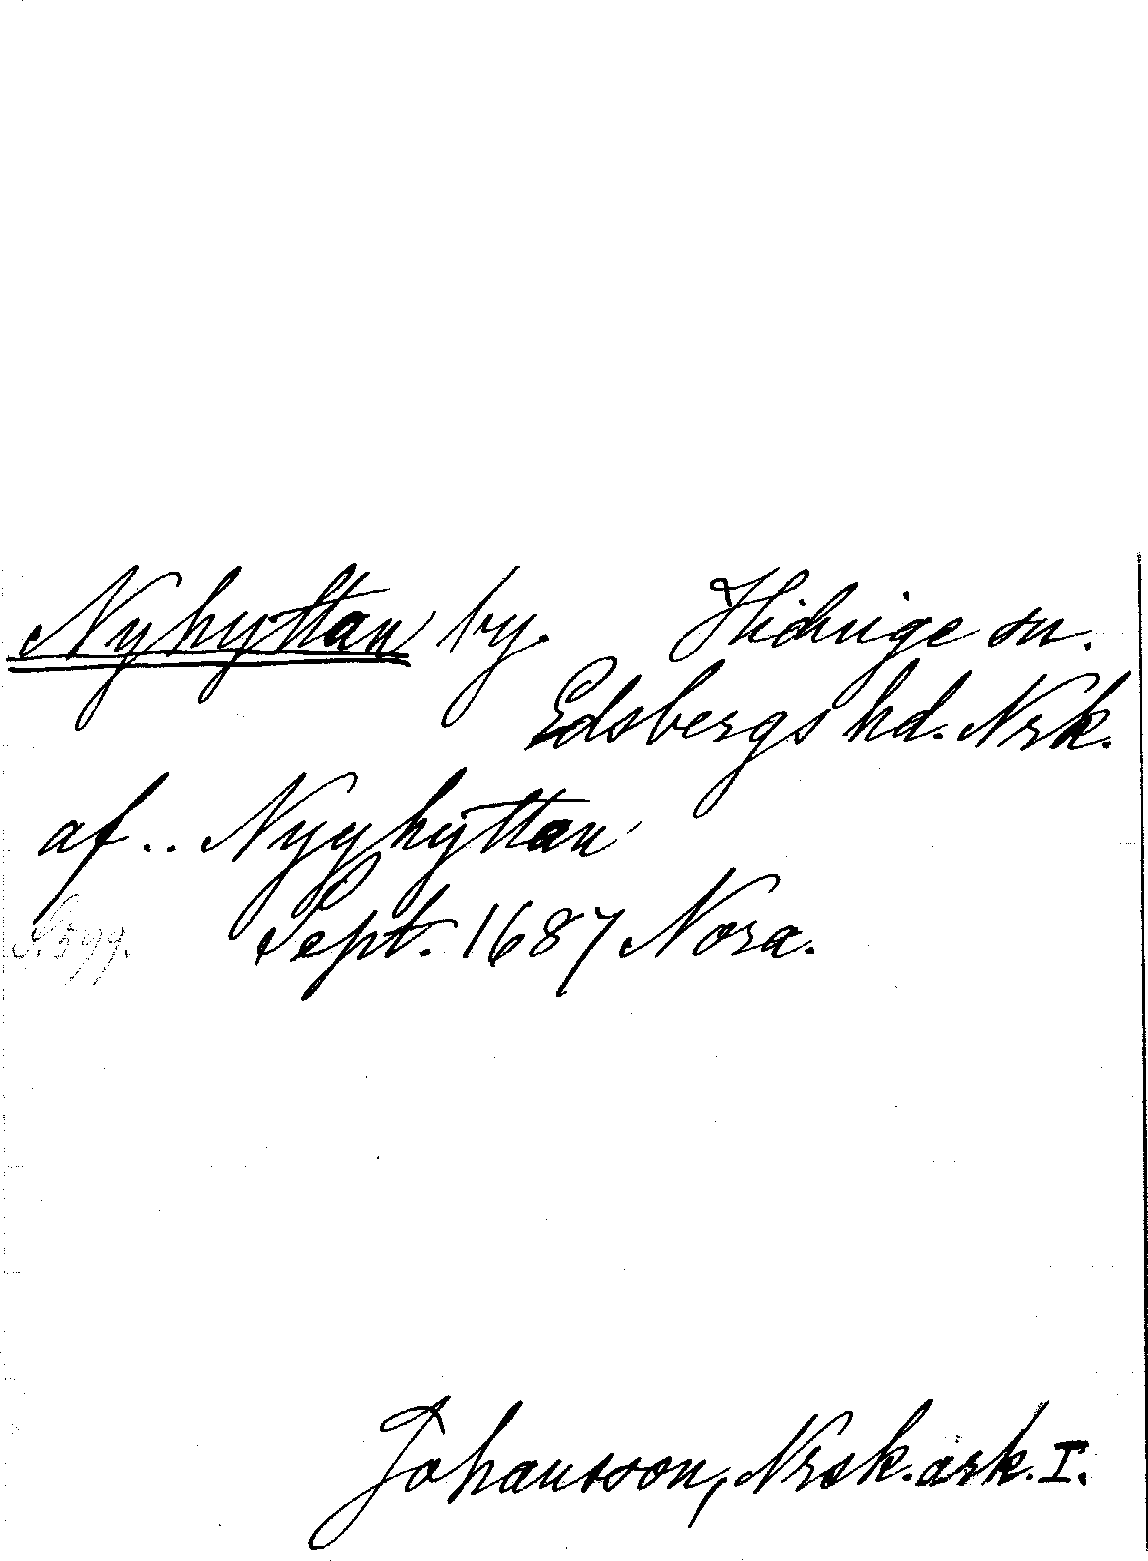 Nyhyttan by. Hidinge sn.
Edsbergs hd. Nrk.
af.. Nyyhÿttan
S. 599. Sept. 1687 Nora.
Johansson, Nrsk. ark. I.